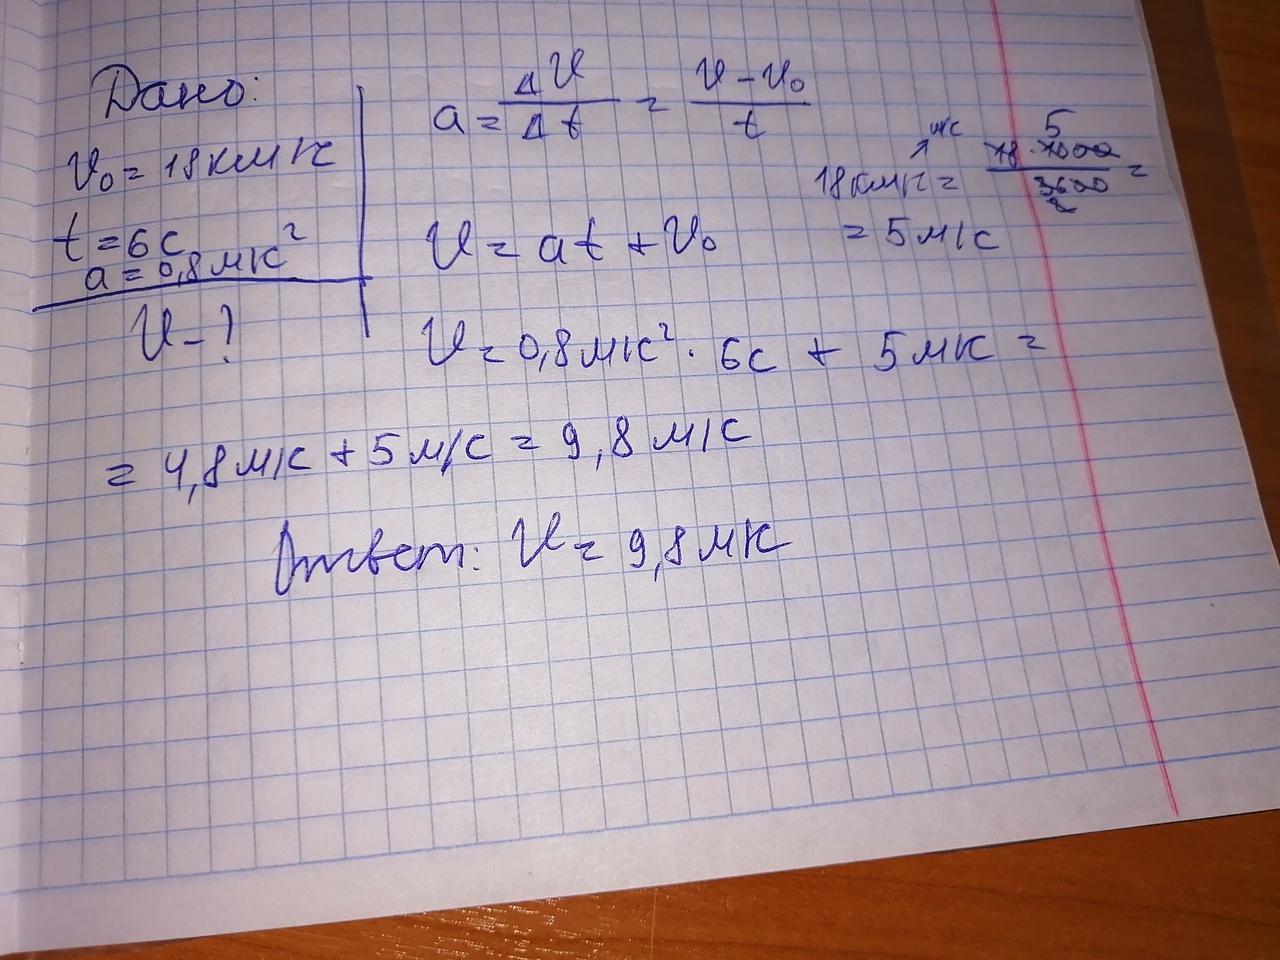 Дано:
V₀ = 18 км/ч
t = 6 с
a = 0,8 м/с²
V - ?
a = ΔV/Δt = V - V₀/t
м/с
5
18 км/ч = 18·1000/3600 =
2
= 5 м/с
V = at + V₀
V = 0,8 м/с² · 6 с + 5 м/с =
= 4,8 м/с + 5 м/с = 9,8 м/с
Ответ: V = 9,8 м/с